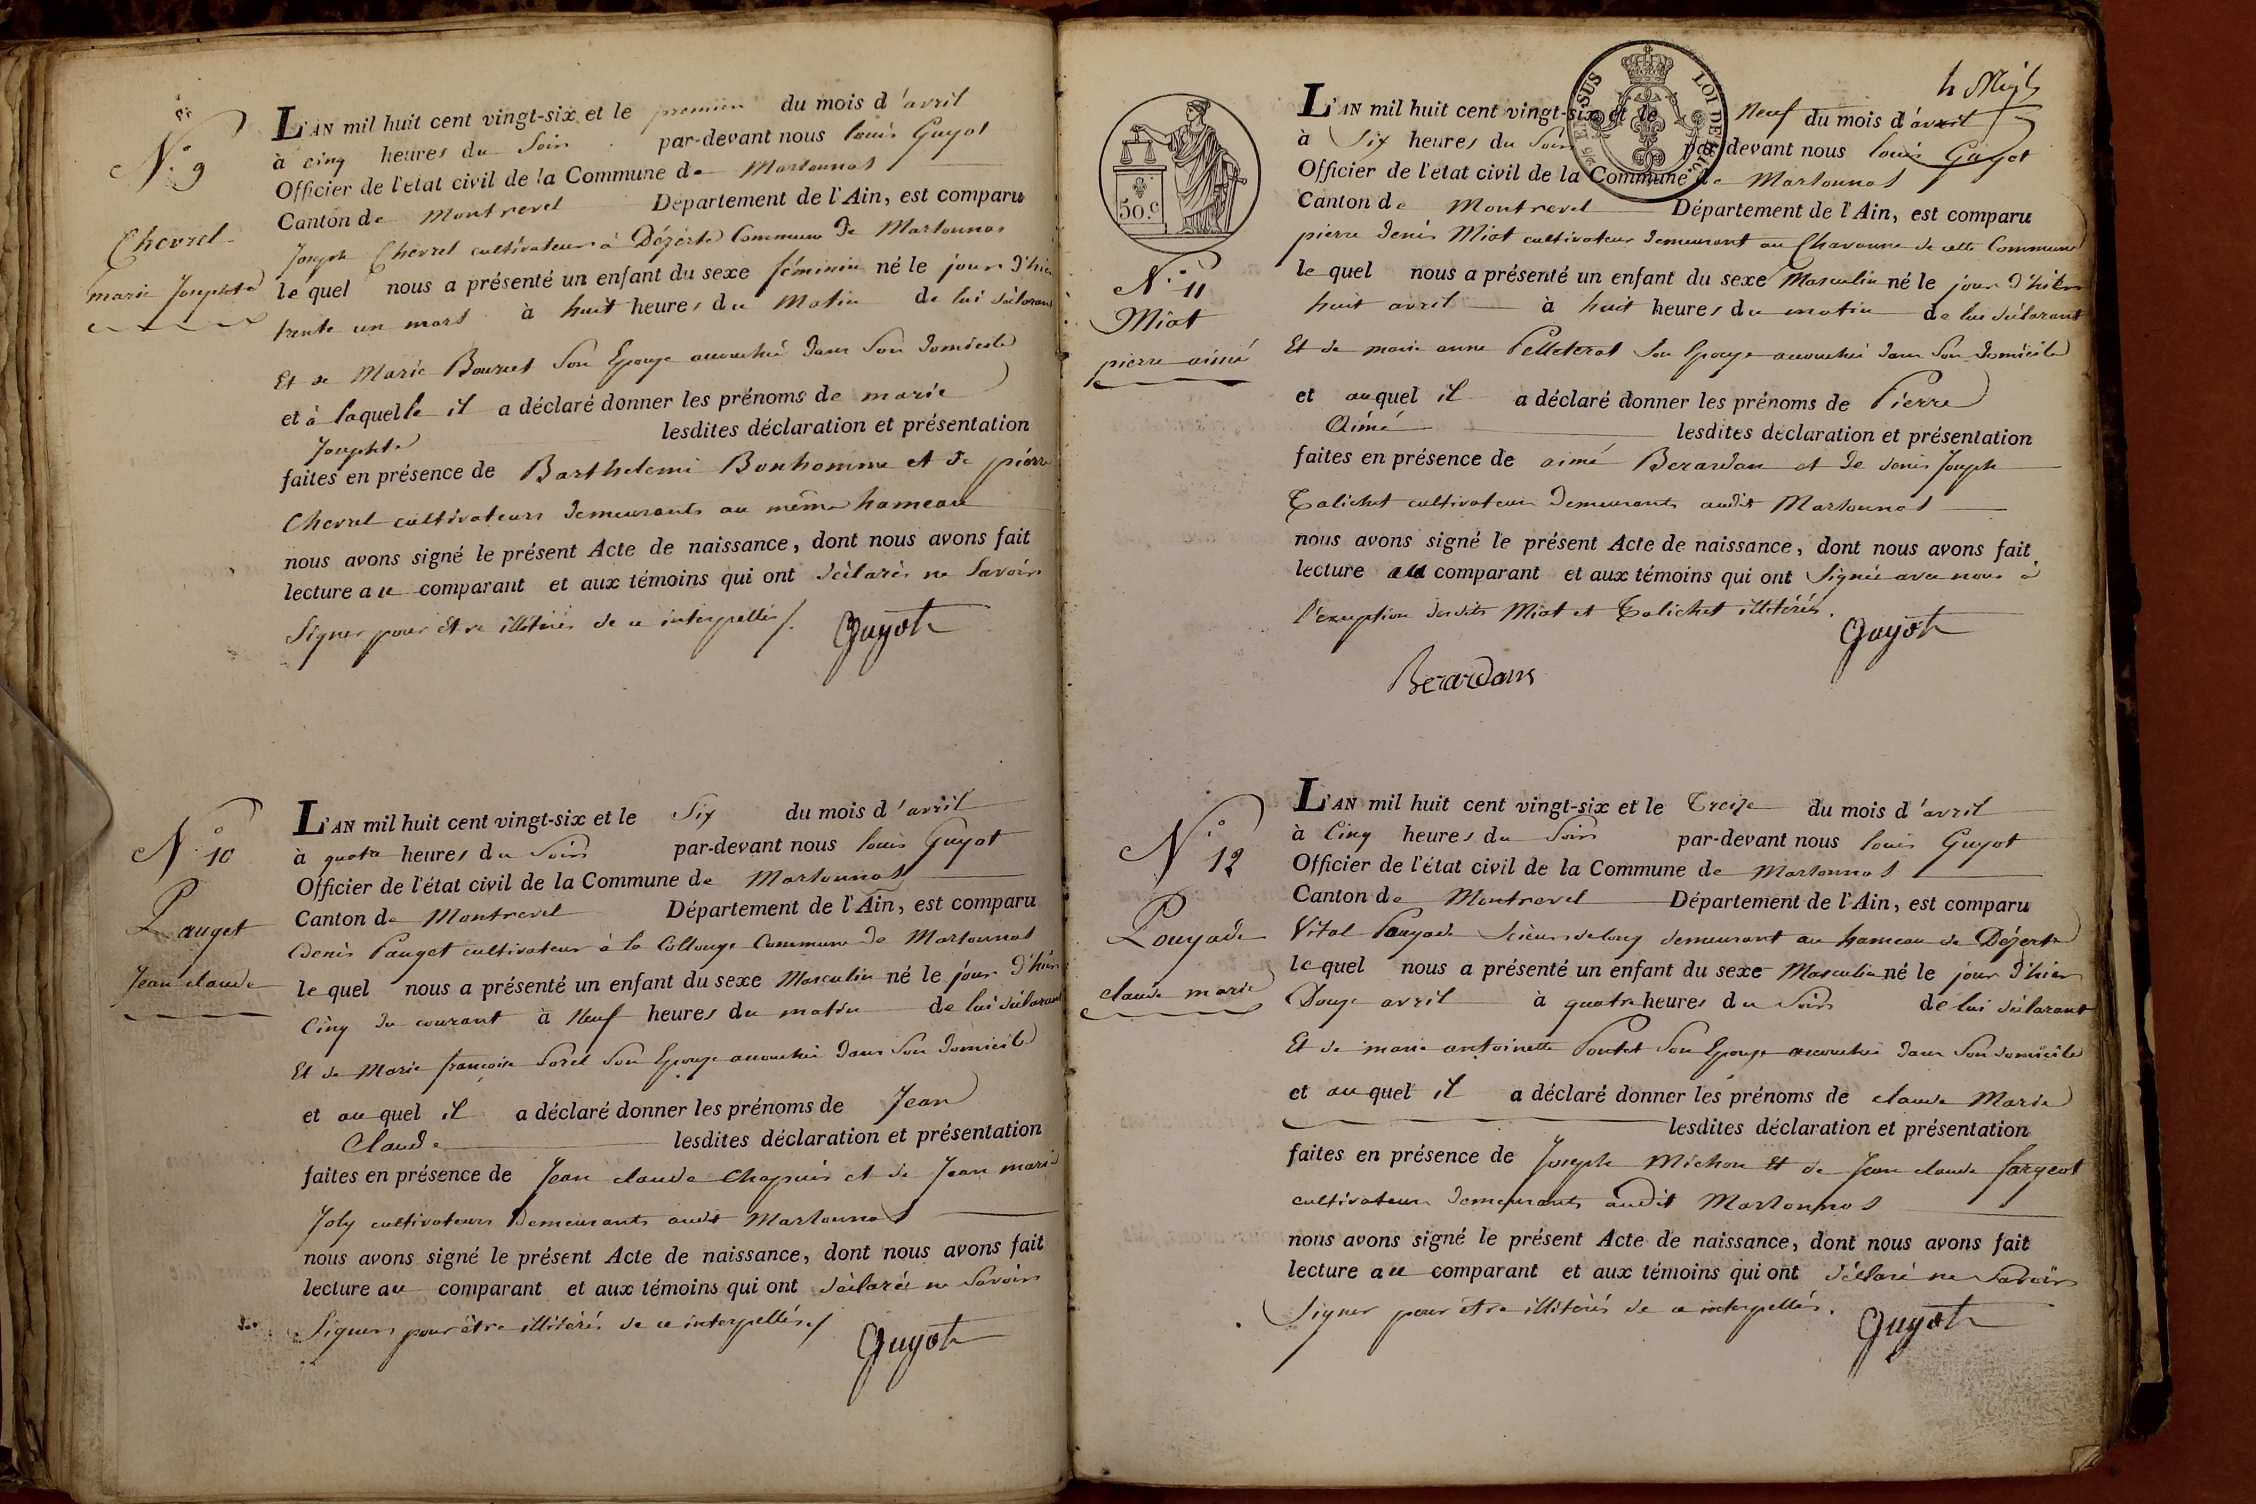 N° 9
Chevrel
marie Josephte
L'AN mil huit cent vingt-six et le premier du mois d'avril
à cinq heures du Soir par-devant nous louis Guyot
Officier de l'etat civil de la Commune de Martonnas
Canton de Montrevel Département de l'Ain, est comparu
Joseph Chevrel cultivateur à Dézerte Commune De Martonnas
le quel nous a présenté un enfant du sexe féminin né le jour D'hier
trente un mars à huit heures du Matin de lui déclarant
Et de Marie Bourset Son Epouse accouchée Dans Son Domicile
et à laquelle il a déclaré donner les prénoms de marie
Josephte lesdites déclaration et présentation
faites en présence de Barthelemi Bonhomme et de pierre
Chevrel cultivateurs Demeurants au même hameau
nous avons signé le présent Acte de naissance, dont nous avons fait
lecture au comparant et aux témoins qui ont déclarés ne Savoir
Signer pour être illitérés de ce interpellés /.
Guyot
N° 10
Pauget
Jean claude
L'AN mil huit cent vingt-six et le Six du mois d'avril
à quatre heures du Soir par-devant nous louis Guyot
Officier de l'état civil de la Commune de Martonnas
Canton de Montrevel Département de l'Ain, est comparu
Denis Pauget cultivateur à la Collonge Commune De Martonnas
le quel nous a présenté un enfant du sexe Masculin né le jour D'hier
Cinq du courant à Neuf heures du matin de lui déclarant
Et de Marie françoise Sorel Son Epouse accouchée Dans Son Domicile
et au quel il a déclaré donner les prénoms de Jean
Claude lesdites déclaration et présentation
faites en présence de Jean claude Chapuis et de Jean marie
Joly cultivateurs Demeurants audit Martonnas
nous avons signé le présent Acte de naissance, dont nous avons fait
lecture au comparant et aux témoins qui ont déclarés ne Savoir
Signer pour être illitérés de ce interpellés /
Guyot
LOI DE
50.c
N° 11
Miot
pierre aimé
L'AN mil huit cent vingt-six et le Neuf du mois d'avril
à Six heures du Soir par-devant nous louis Guyot
Officier de l'état civil de la Commune de Martonnas
Canton de Montrevel Département de l'Ain, est comparu
pierre denis Miot cultivateur Demeurant au Chavanne de cette Commune
le quel nous a présenté un enfant du sexe Masculin né le jour D'hier
huit avril à huit heures du matin de lui déclarant
Et de marie anne Pelleterat Son Epouse accouchée Dans Son Domicile
et auquel il a déclaré donner les prénoms de Pierre
Aimé lesdites déclaration et présentation
faites en présence de aimé Berardan et De denis Joseph
Talichet cultivateurs Demeurants audit Martonnas
nous avons signé le présent Acte de naissance, dont nous avons fait
lecture au comparant et aux témoins qui ont Signée avec nous à
l'exception desdits Miot et Talichet illitérés.
Guyot
Berardan
N° 12
Pouyade
claude marie
L'AN mil huit cent vingt-six et le Treize du mois d'avril
à Cinq heures du Soir par-devant nous louis Guyot
Officier de l'état civil de la Commune de Martonnas
Canton de Montrevel Département de l'Ain, est comparu
Vital Pouyade Scieur de long demeurant au hameau de Dézerte
le quel nous a présenté un enfant du sexe Masculin né le jour D'hier
Douze avril à quatre heures du Soir de lui déclarant
Et de marie antoinette Pontet Son Epouse accouchée Dans Son domicile
et au quel il a déclaré donner les prénoms de claude Marie
lesdites déclaration et présentation
faites en présence de Joseph Michon Et de Jean claude fargeot
cultivateurs Demeurants audit Martonnas
nous avons signé le présent Acte de naissance, dont nous avons fait
lecture au comparant et aux témoins qui ont déclaré ne Savoir
Signer pour être illitérés de ce interpellés.
Guyot